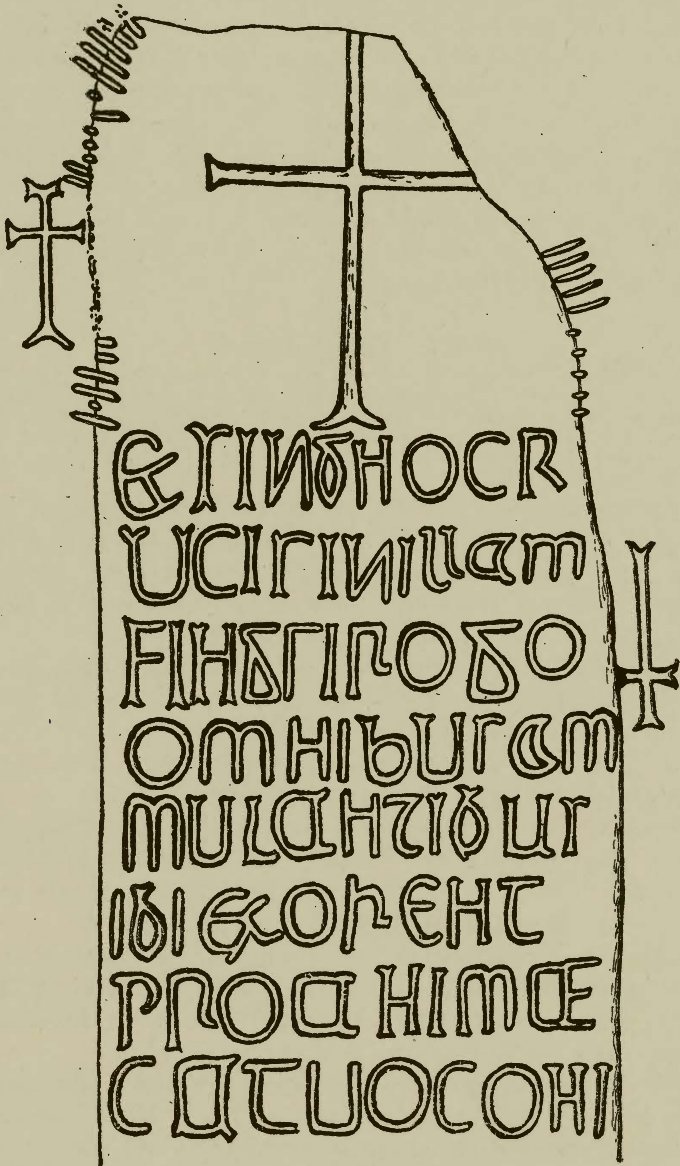 ET SINGNO CR
UCIS IN ILLAM
FINGSI ROGO
OMNIBUS AM
MULANTIBUS
IBI EXORENT
PRO ANIMAE
CATUOCONI